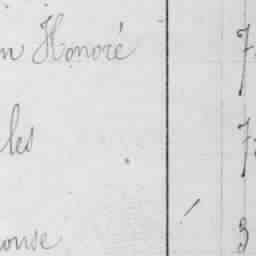 n Honoré 7
les 7
onse 3